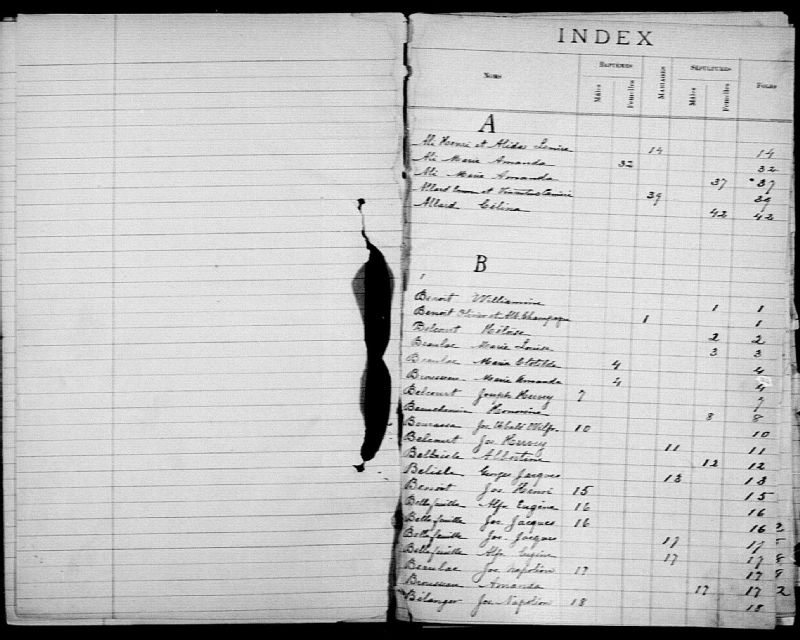 INDEX
Noms Baptêmes Mariages Sépultures Folio
Mâles Femelles Mâles Femelles
A
Ali Henri et Alida Lemire 14 14
Ali Marie Amanda 32 32
Ali Maria Amanda 37 37
Allard et 39 39
Allard Célina 42 42
B
Benoit Williamine 1 1
Benoit Olivier et Champagne 1 1
Belcourt Héloise 2 2
Beaulac Marie Louise 3 3
Beaulac Maria Clotilde 4 4
Brousseau Marie Amanda 4 4
Belcourt Joseph Hervey 7 7
Beauchemin Honorine 8 8
Bourassa Jos Ubald Wilfr. 10 10
Belcourt Jos Hervey 11 11
Bellisle Albertine 12 12
Belisle Georges Jacques 13 13
Benoit Jos Henri 15 15
Bellefeuille Alfr Eugène 16 16
Bellefeuille Jos Jacques 16 16
Bellefeuille Jos. Jacques 17 17
Bellefeuille Alfr. Eugène 17 17
Beaulac Jos Napoléon 17 17
Brousseau Amanda 17 17
Bélanger Jos Napoléon 18 18